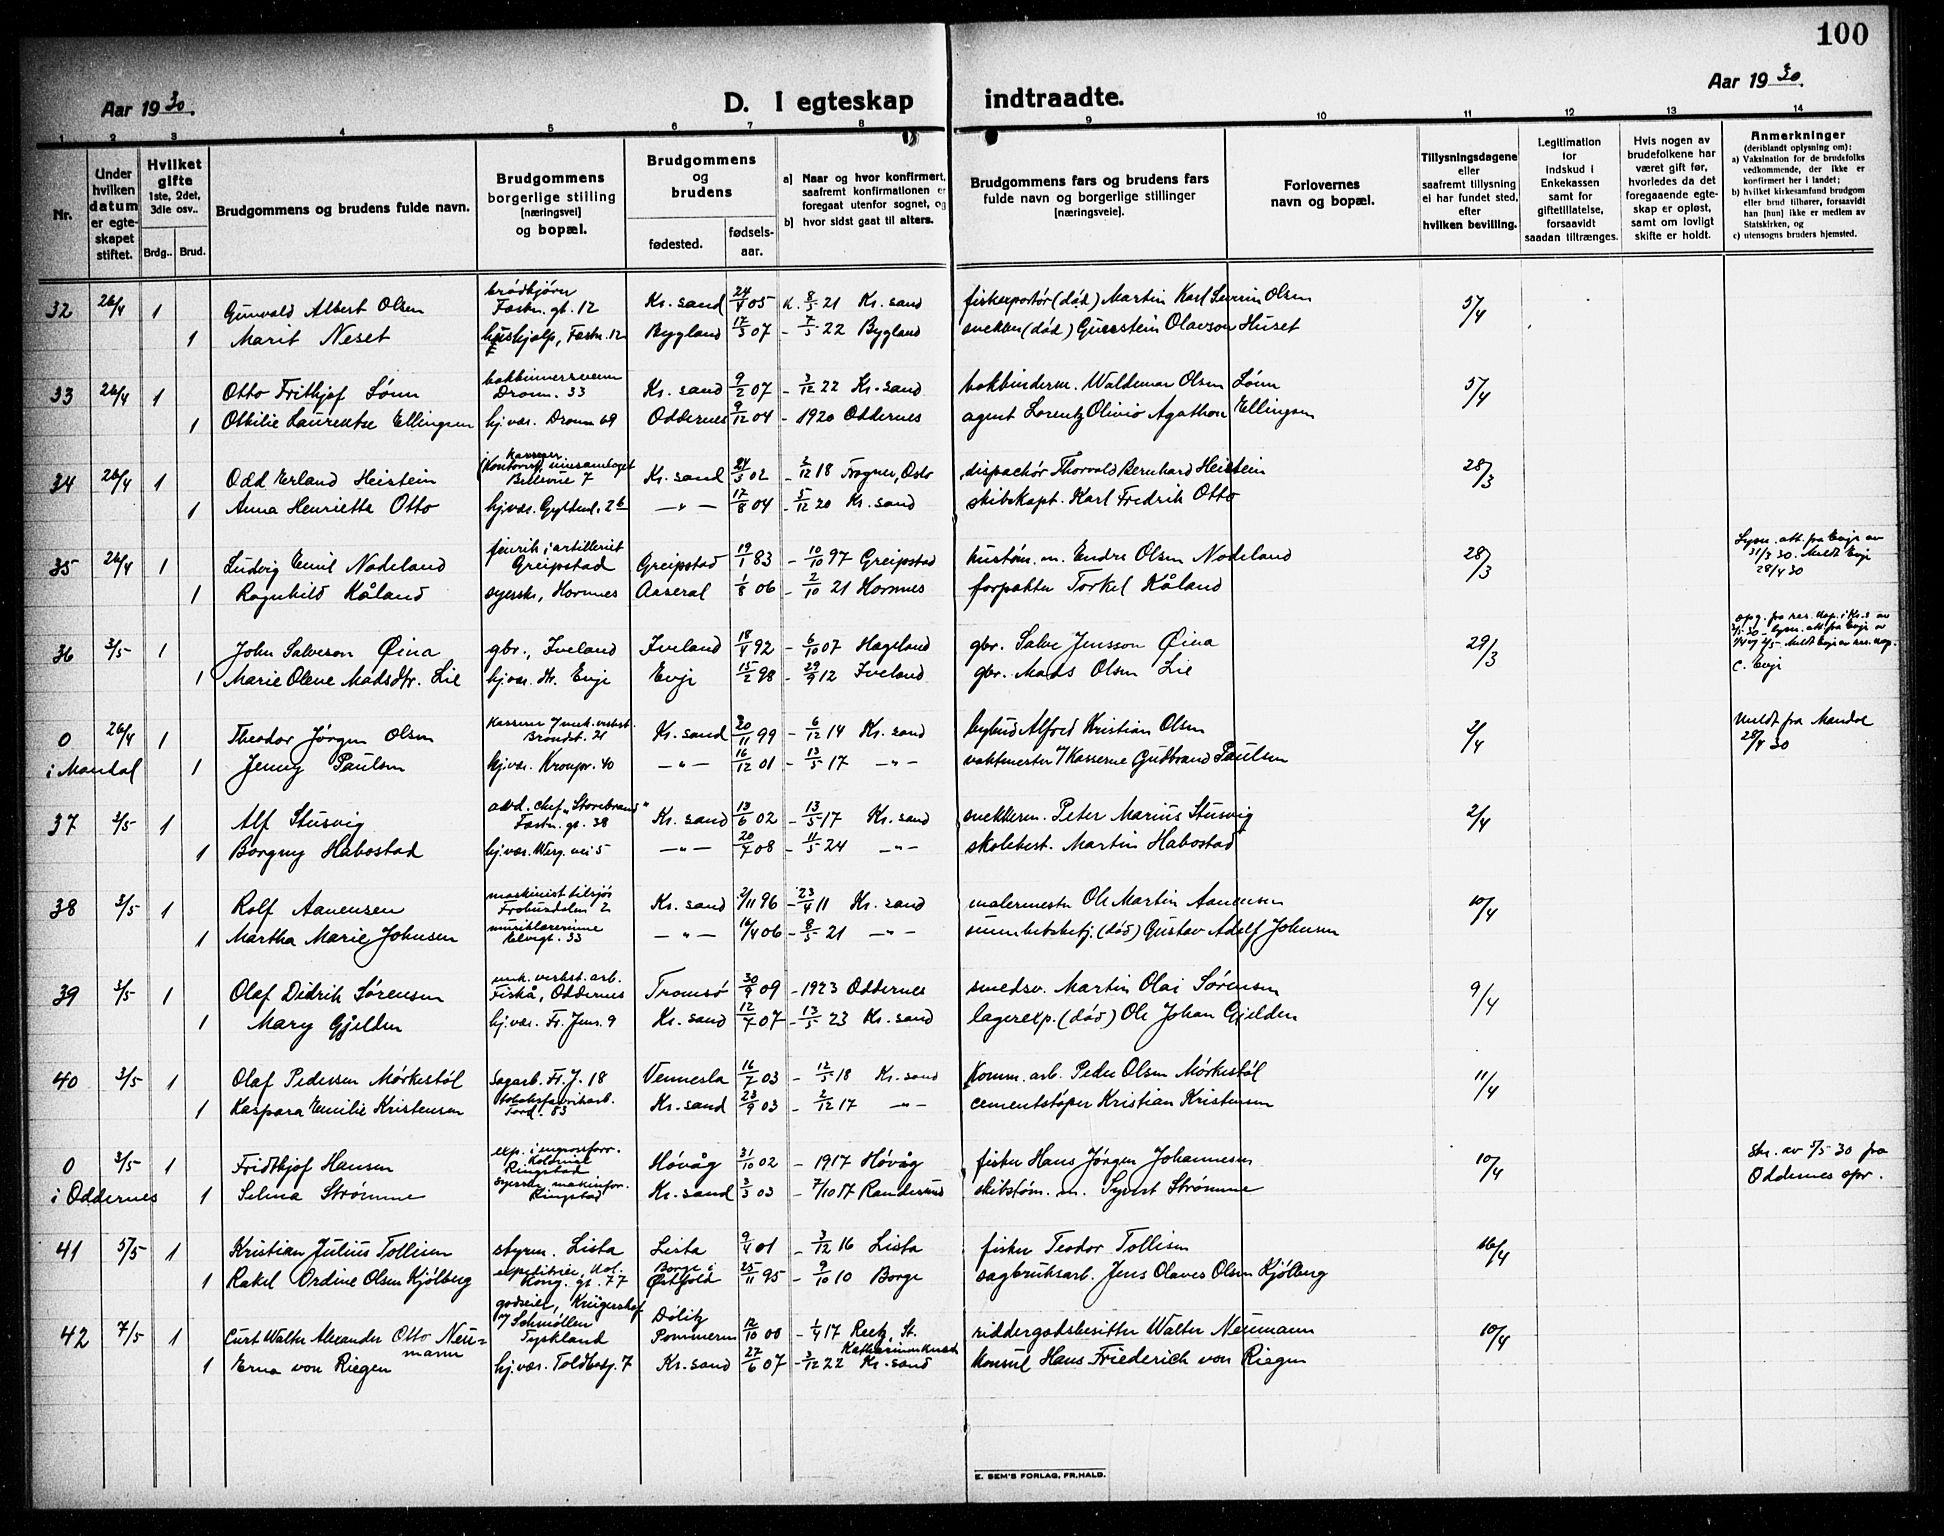 100
Aar 1930. D. I egteskap indtraadte. Aar 1930.
1 2 3 4 5 6 7 8 9 10 11 12 13 14
Nr.
Under hvilken datum er egteskapet stiftet.
Hvilket gifte 1ste, 2det, 3die osv..
Brdg.. Brud.
Brudgommens og brudens fulde navn.
Brudgommens borgerlige stilling [næringsvei] og bopæl.
Brudgommens og brudens
fødested. fødselsaar.
a) Naar og hvor konfirmert, saafremt konfirmationen er foregaat utenfor sognet, og
b) hvor sidst gaat til alters.
Brudgommens fars og brudens fars fulde navn og borgerlige stillinger [næringsveie].
Forlovernes navn og bopæl.
Tillysningsdagene eller saafremt tillysning ei har fundet sted, efter hvilken bevilling.
Legitimation for Indskud i Enkekassen samt for giftetillatelse, forsaavidt saadan tiltrænges.
Hvis nogen av brudefolkene har været gift før, hvorledes da det foregaaende egteskap er opløst, samt om lovligt skifte er holdt.
Anmerkninger (deriblandt oplysning om):
a) Vaksination for de brudefolks vedkommende, der ikke er konfirmert her i landet;
b) hvilket kirkesamfund brudgom eller brud tilhører, forsaavidt han [hun] ikke er medlem av Statskirken, og
c) utensogns bruders hjemsted.
32 26/4 1 Gunvald Albert Olsen Fæstn. gt. 12 Kr. sand 24/4 05 K. 8/5 21 Kr. sand (død) Martin Karl Severin Olsen 5/4
1 Marit Neset hushjælp, Fæstn. 12 Bygland 17/3 07 - 7/5 22 Bygland snekker (død) Gunstein Olavson Huset
33 26/4 1 Otto Frithjof Lønn bokbindersvenn Dronn. 33 Kr. sand 9/2 07 - 3/12 22 Kr. sand bokbinderm. Waldemar Olsen Lønn 5/4
1 Ottilie Laurentse Ellingsen hj.vær. Dronn 69 Oddernes 9/12 04 - 1920 Oddernes agent Lorentz Olivio Agathon Ellingsen
34 26/4 1 Odd Erland Heistein Bellevue 7 Kr. sand 24/5 02 - 2/12 18 Frogner, Oslo dispachør Thorvald Bernhard Heistein 28/3
1 Anna Henriette Otto hj.vær. Gyldenl. 26 —"— 17/8 04 - 5/12 20 Kr. sand skibskapt. Karl Fredrik Otto
35 26/4 1 Ludvig Emil Nodeland fenrik i artilleriet Greipstad Greipstad 19/1 83 - 10/10 97 Greipstad hustøm. m. Endre Olsen Nodeland 28/3 Lysn. att. fra Evje av 31/3 30. Meldt Evje 28/4 30
1 Ragnhild Kåland syerske, Hornnes Aaseral 1/8 06 - 2/10 21 Hornnes forpakter Torkel Kåland
36 3/5 1 John Salveson Øina gbr., Iveland Iveland 18/4 92 - 6/10 07 Hægeland gbr. Salve Jensson Øina 29/3
1 Marie Olene Madsdtr. Lie hj.vær. Evje Evje 15/2 98 - 29/9 12 Iveland gbr. Mads Olsen Lie C. Evje
0 26/4 1 Theodor Jørgen Olsen kasserer Brøndst. 21 Kr. sand 30/11 99 - 6/12 14 Kr. sand bybud Alfred Kristian Olsen 2/4 Meldt fra Mandal 28/4 30
i Mandal 1 Jenny Paulsen hj.vær. Kronpr. 40 —"— 16/12 01 - 13/5 17 —"— vaktmester v/ Kaserne Gudbrand Paulsen
37 3/5 1 Alf Stusvig avd. chef „Storebrand" Fæstn. gt. 38 Kr. sand 13/6 02 - 13/5 17 Kr. sand snekkerm. Peter Marius Stusvig 2/4
1 Borgny Habostad hj.vær. Werg. vei 5 —"— 20/7 08 - 11/5 24 —"— skolebest. Martin Habostad
38 3/5 1 Rolf Aanensen maskinist tilsjøs Frobusdalen 2 Kr. sand 2/11 96 - 23/4 11 Kr. sand malermester Ole Martin Aanensen 10/4
1 Martha Marie Johnsen musiklærerinne Elvegt. 33 —"— 16/4 06 - 8/5 21 —"— (død) Gustav Adolf Johnsen
39 3/5 1 Olaf Didrik Sørensen mek. verkst. arb. Fiskå, Oddernes Tromsø 30/9 09 - 1923 Oddernes smedsv. Martin Olai Sørensen 9/4
1 Mary Gjelden hj.vær. Fr. Jens. 9 Kr. sand 12/7 07 - 13/5 23 Kr. sand lagerexp. (død) Ole Johan Gjelden
40 3/5 1 Olaf Pedersen Mørkestøl Sagarb. Fr. J. 18 Vennesla 16/7 03 - 12/5 18 Kr. sand Komm. arb. Peder Olsen Mørkestøl 11/4
1 Kaspara Emilie Kristensen Tobaksfabrikarb. Tord. 53 Kr. sand 23/9 03 - 2/12 17 —"— cementstøper Kristian Kristensen
0 3/5 1 Fridthjof Hansen exp. i engrosforr. Kolonial Ringstad Høvåg 31/10 02 - 1917 Høvåg fisker Hans Jørgen Johannesen 10/4 Skr. av 5/5 30 fra Oddernes spr.
i Oddernes 1 Selma Strømme Ringstad Kr. sand 3/3 03 - 7/10 17 Randesund skibstøm. m. Syvert Strømme
41 5/5 1 Kristian Julius Tollisen styrm. Lista Lista 9/4 01 - 3/12 16 Lista fisker Teodor Tollisen 16/4
1 Rakel Ordine Olsen Kjølberg Kong. gt. 77 Borge i Østfold 25/11 95 - 9/10 10 Borge sagbruksarb. Jens Olaves Olsen Kjølberg
42 7/5 1 Curt Walter Alexander Otto Neumann godseier, Krügershof v/ Schmöllen Tyskland Dölitz Pommern 12/10 00 - 1/4 17 Reetz, St. Katharinenkirche riddergodsbesitter Walter Neumann 10/4
1 Erna von Riegen hj.vær. Toldbodg. 7 Kr. sand 27/6 07 - 3/12 22 Kr. sand Konsul Hans Friederich von Riegen
E. SEM'S FORLAG, FR.HALD.